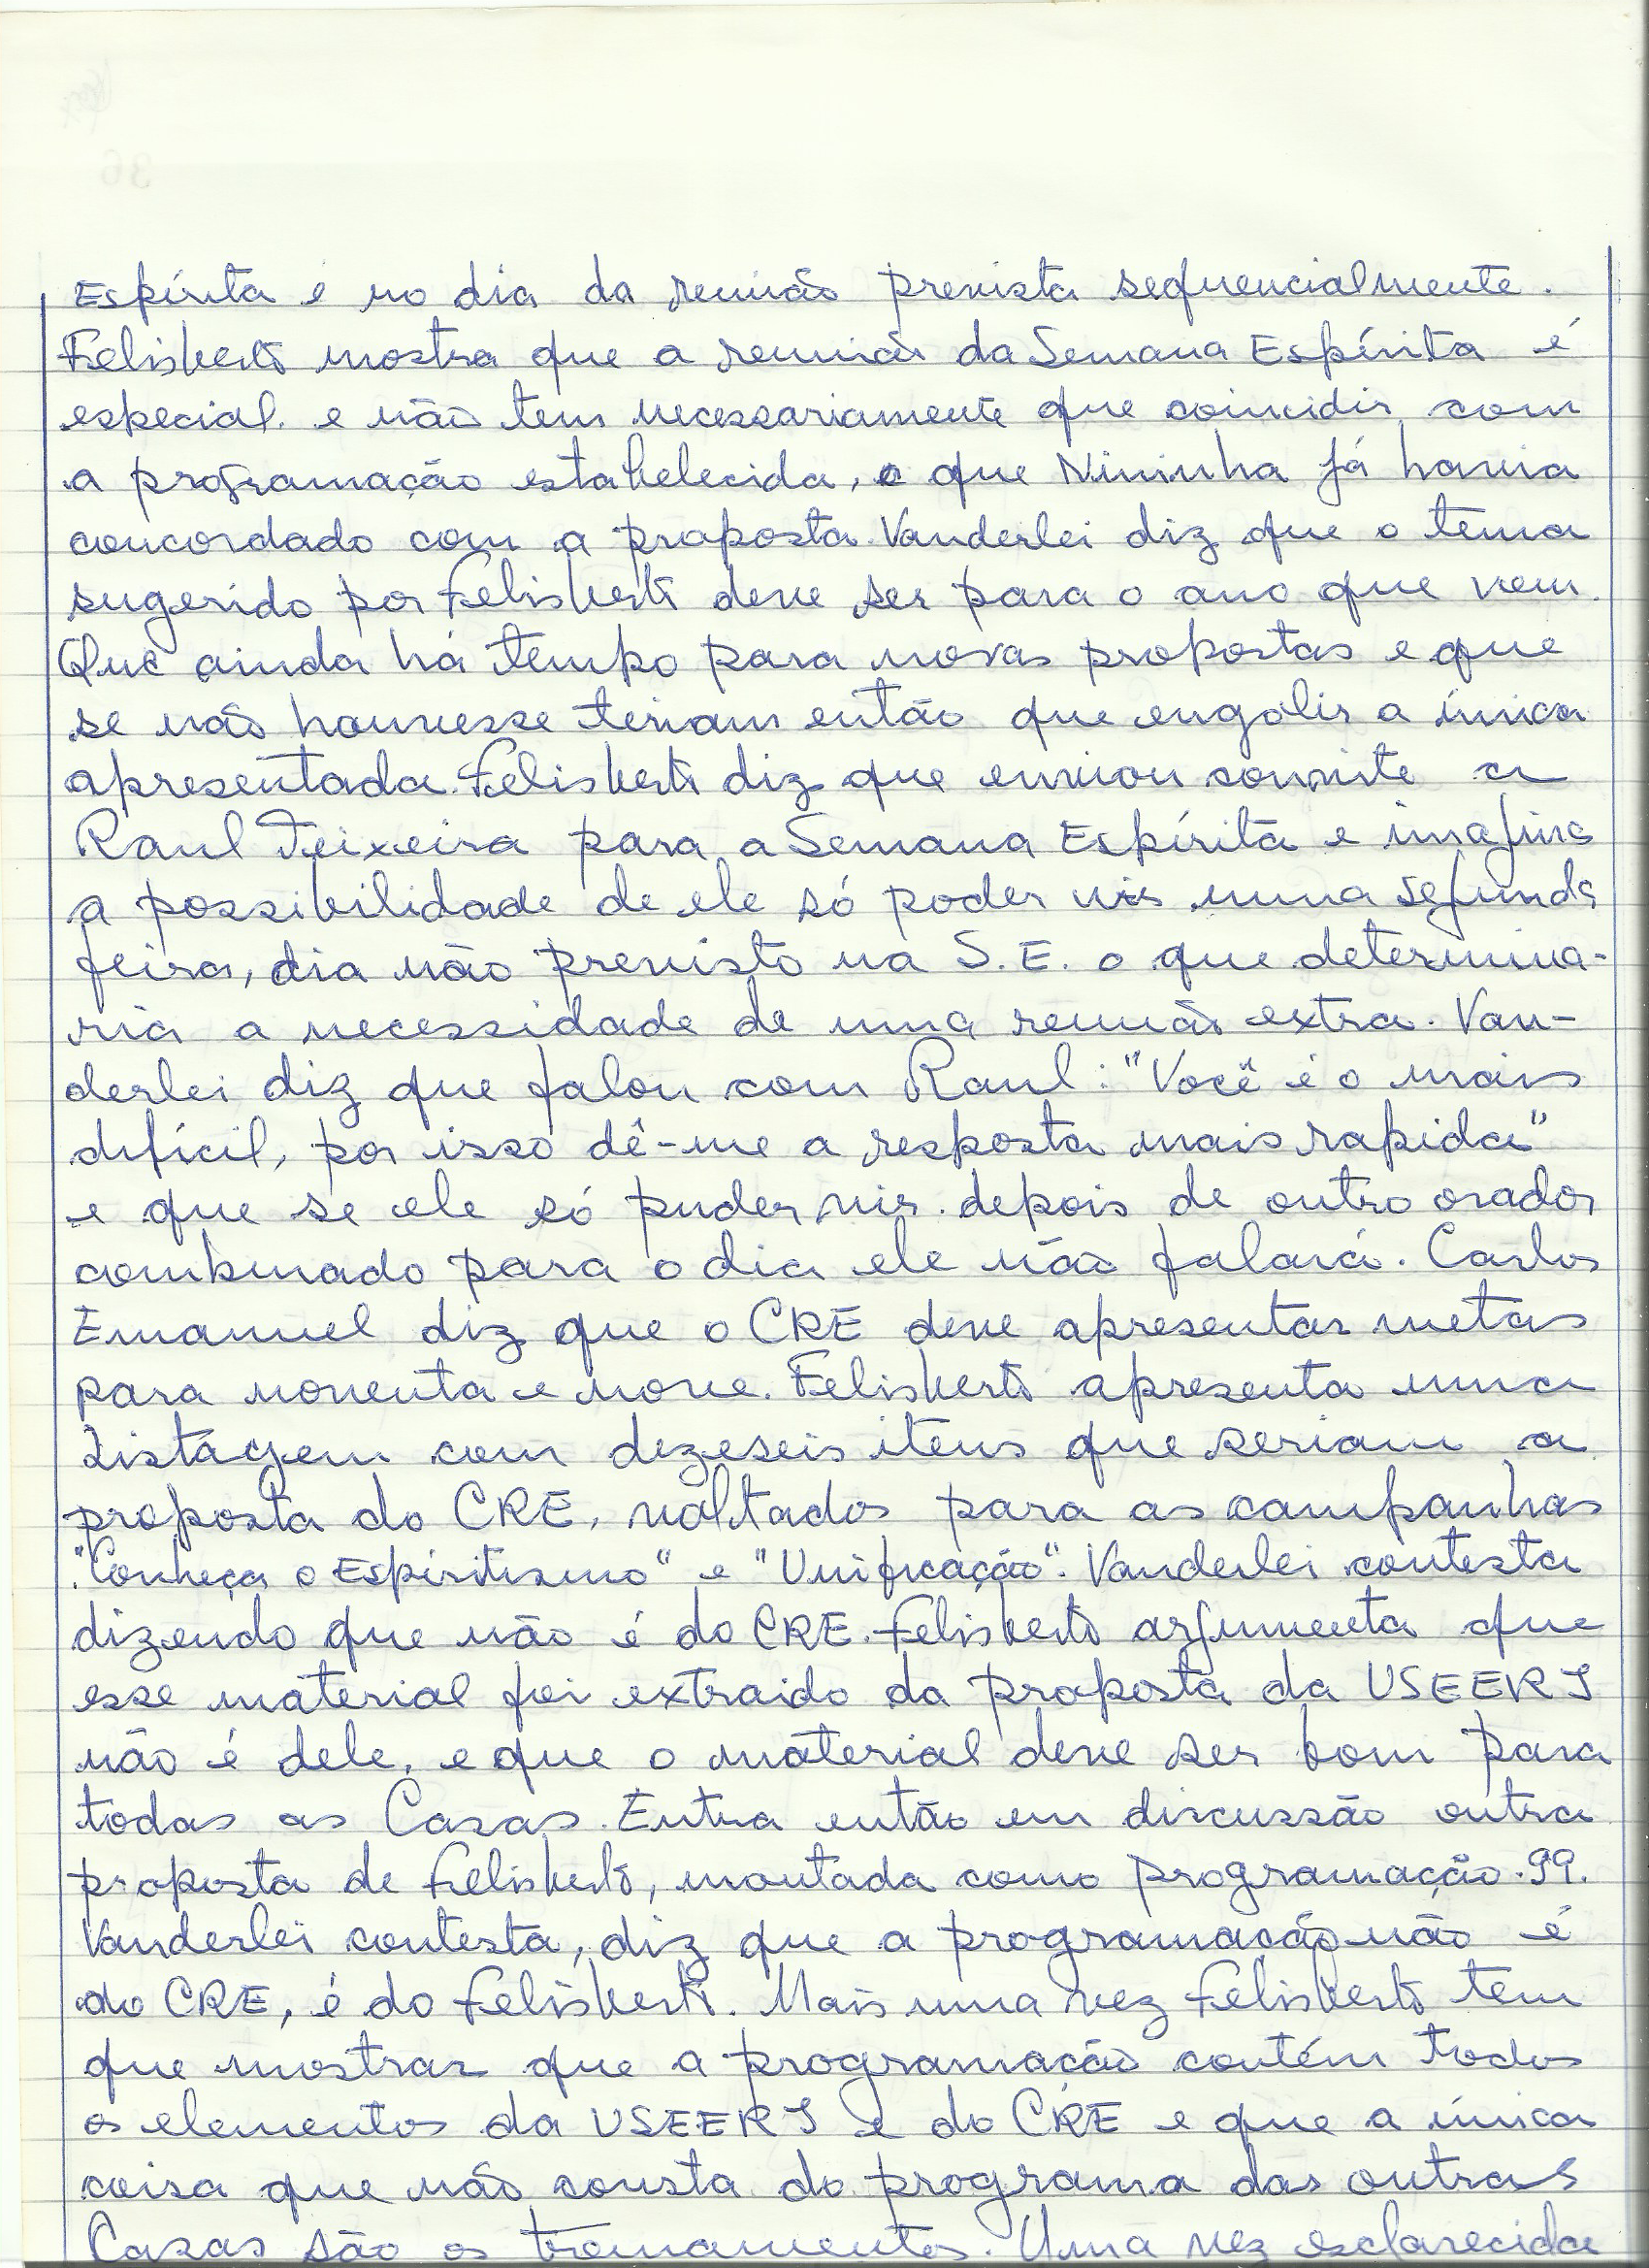 Espírita e no dia da reunião prevista sequencialmente.
Felisberto mostra que a reunião da Semana Espírita é
especial e não tem necessariamente que coincidir com
a programação estabelecida, o que Nininha já havia
concordado com a proposta. Vanderlei diz que o tema
sugerido por Felisberto deve ser para o ano que vem.
Que ainda há tempo para novas propostas e que
se não houvesse teriam então que engolir a única
apresentada. Felisberto diz que enviou convite a
Raul Teixeira para a Semana Espírita e imagina
a possibilidade de ele só poder vir numa segunda
feira, dia não previsto na S.E. o que determina-
ria a necessidade de uma reunião extra. Van-
derlei diz que falou com Raul: "Você é o mais
difícil, por isso dê-me a resposta mais rapida"
e que se ele só puder vir depois de outro orador
combinado para o dia ele não falará. Carlos
Emanuel diz que o CRE deve apresentar metas
para noventa e nove. Felisberto apresenta uma
Listagem com dezeseis itens que seriam a
proposta do CRE, voltados para as campanhas
"Conheça o Espiritismo" e "Unificação". Vanderlei contesta
dizendo que não é do CRE. Felisberto argumenta que
esse material foi extraido da proposta da USEERJ
não é dele, e que o material deve ser bom para
todas as Casas. Entra então em discussão outra
proposta de Felisberto, montada como programação 99.
Vanderlei contesta, diz que a programação não é
do CRE, é do Felisberto. Mais uma vez Felisberto tem
que mostrar que a programação contém todos
os elementos da USEERJ e do CRE e que a única
coisa que não consta do programa das outras
Casas são os treinamentos. Uma vez esclarecida